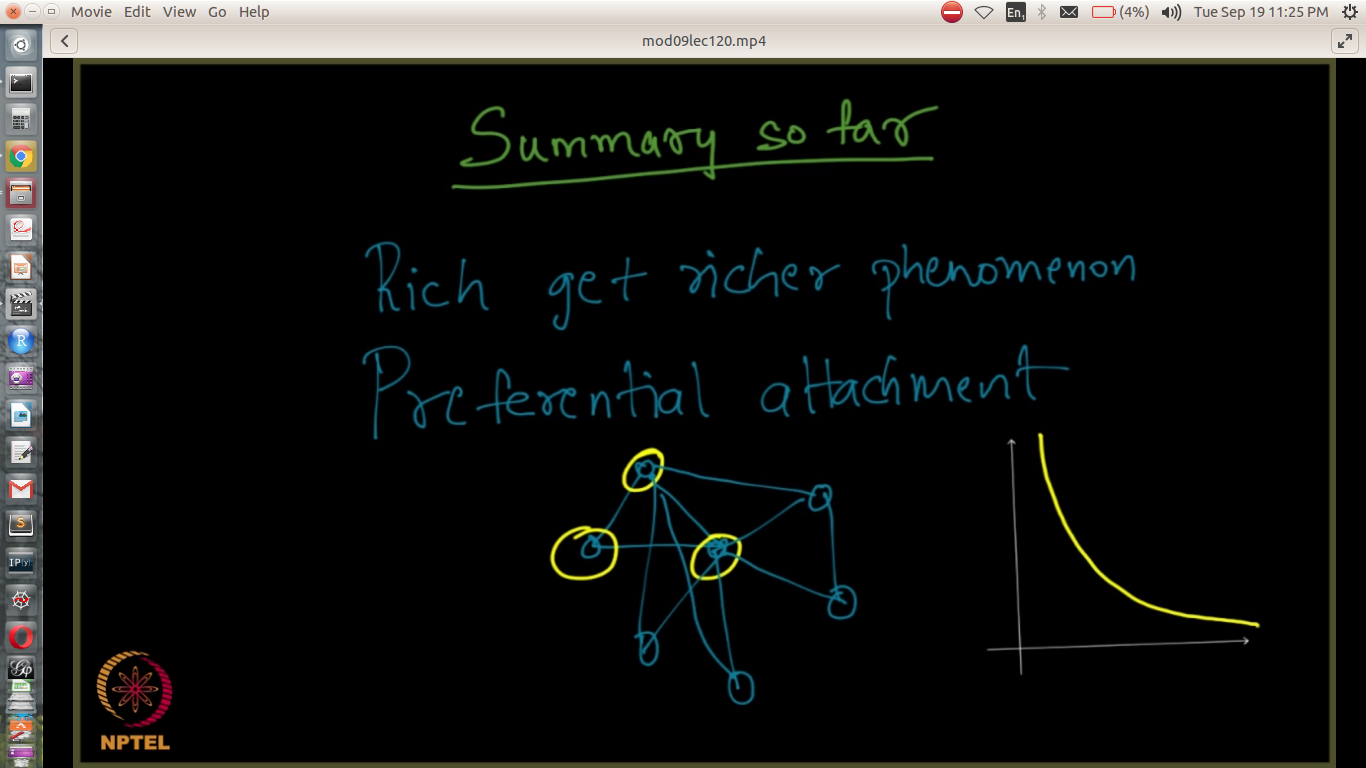 Movie Edit View Go Help
En1 (4%) Tue Sep 19 11:25 PM
mod09lec120.mp4
Summary so far
Rich get richer phenomenon
Preferential attachment
R
S
IP[y]:
Gp
NPTEL